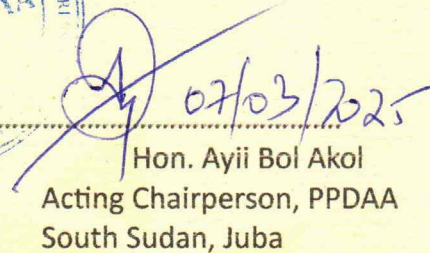 07/03/2025
Hon. Ayii Bol Akol
Acting Chairperson, PPDAA
South Sudan, Juba